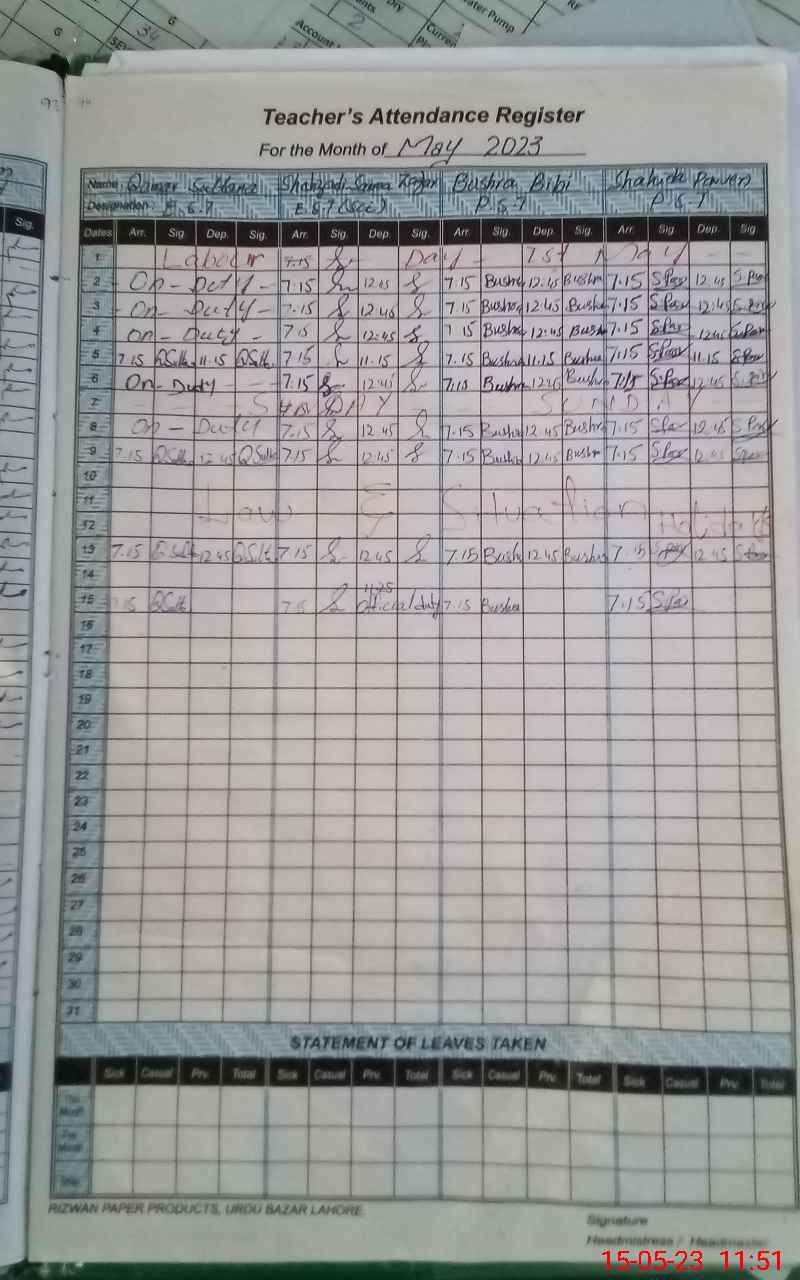 G
G
34
Account
2
Dry
Curre
ater Pump
Teacher's Attendance Register
For the Month of May 2023
Name Qamar Sultana Shahzadi Bushra Bibi Shahida Parveen
Designation: E.S.T E.S.T (Sci) P.S.T P.S.T
Sig. Dates Arr. Sig. Dep. Sig. Arr. Sig. Dep. Sig. Arr. Sig. Dep. Sig. Arr. Sig. Dep. Sig.
1 Labour 7.15 Day 1st May
2 On - Duty - 7.15 12.45 7.15 Bushra 12.45 Bushra 7.15 S.Par 12.45 S.Par
3 - On - Duty - 7.15 12.45 7.15 Bushra 12.45 Bushra 7.15 S.Par 12.45 S.Par
4 On - Duty - 7 15 12:45 7 15 Bushra 12.45 Bushra 7.15 S.Par 12.45 S.Par
5 7.15 QSult. 11.15 QSult. 7.15 11.15 7.15 Bushra 11.15 Bushra 7.15 S.Par 11.15 S.Par
6 On - Duty - 7.15 12.45 7.15 Bushra 12.45 Bushra 7.15 S.Par 12.45 S.Par
7 SUNDAY SUNDAY
8 On - Duty 7.15 12.45 7.15 Bushra 12.45 Bushra 7.15 S.Par 12.45 S.Par
9 7.15 QSult 12.45 QSult 7.15 12.45 7.15 Bushra 12.45 Bushra 7.15 S.Par 12.45 S.Par
10
11 Law & Situation
12 Holidays
13 7.15 QSult 12.45 QSult 7.15 12.45 7.15 Bushra 12.45 Bushra 7.15 S.Par 12.45 S.Par
14
11.25
15 7.15 QSult 7.15 Official duty 7.15 Bushra 7.15 S.Par
16
17
18
19
20
21
22
23
24
25
26
27
28
29
30
31
STATEMENT OF LEAVES TAKEN
Sick Casual Prv. Total Sick Casual Prv. Total Sick Casual Prv. Total Sick Casual Prv. Total
RIZWAN PAPER PRODUCTS, URDU BAZAR LAHORE.
Signature
Headmistress / Headmaster
15-05-23 11:51